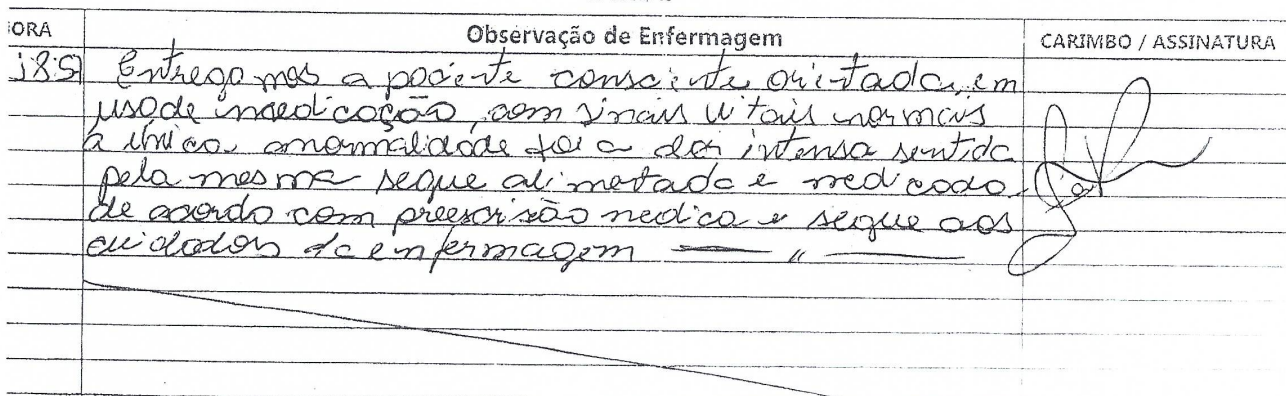 ORA Observação de Enfermagem CARIMBO / ASSINATURA
18:5 Entregamos a paciente consciente orientada, em
uso de medicação, com sinais vitais normais
a única anormalidade foi a dor intensa sentida
pela mesma segue alimentada e medicada
de acordo com preescrisão medica e segue aos
cuidados da enfermagem — " —